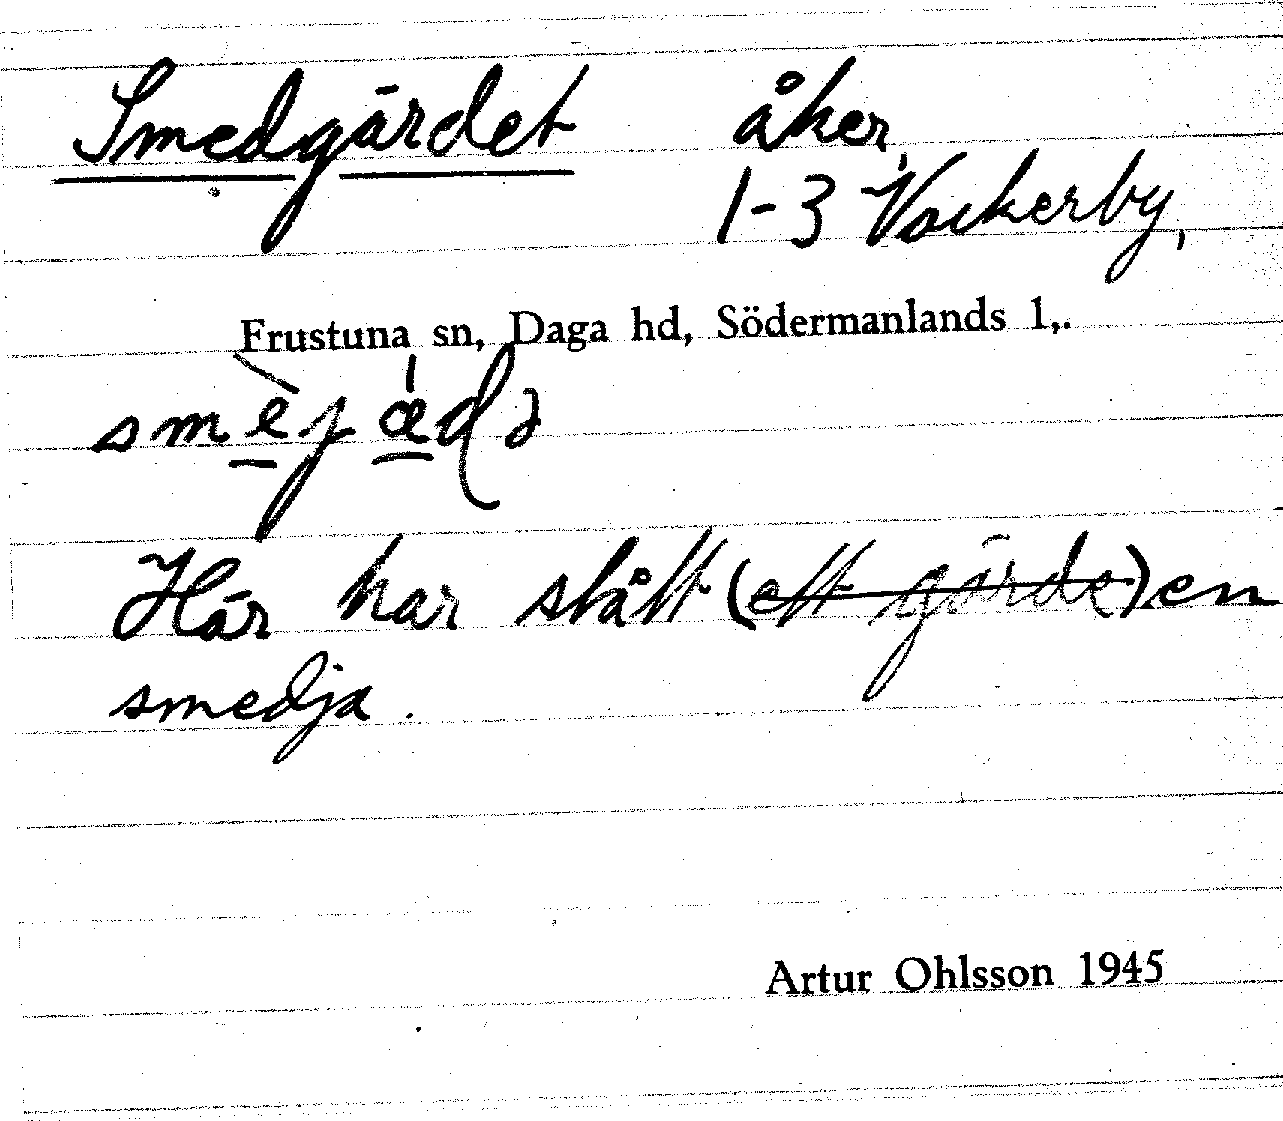 Smedgärdet åker,
1-3 Vackerby,
Frustuna sn, Daga hd, Södermanlands l,.
smèjæ̀ɖə
Här har stått (~~ett gärde~~) en
smedja.
Artur Ohlsson 1945